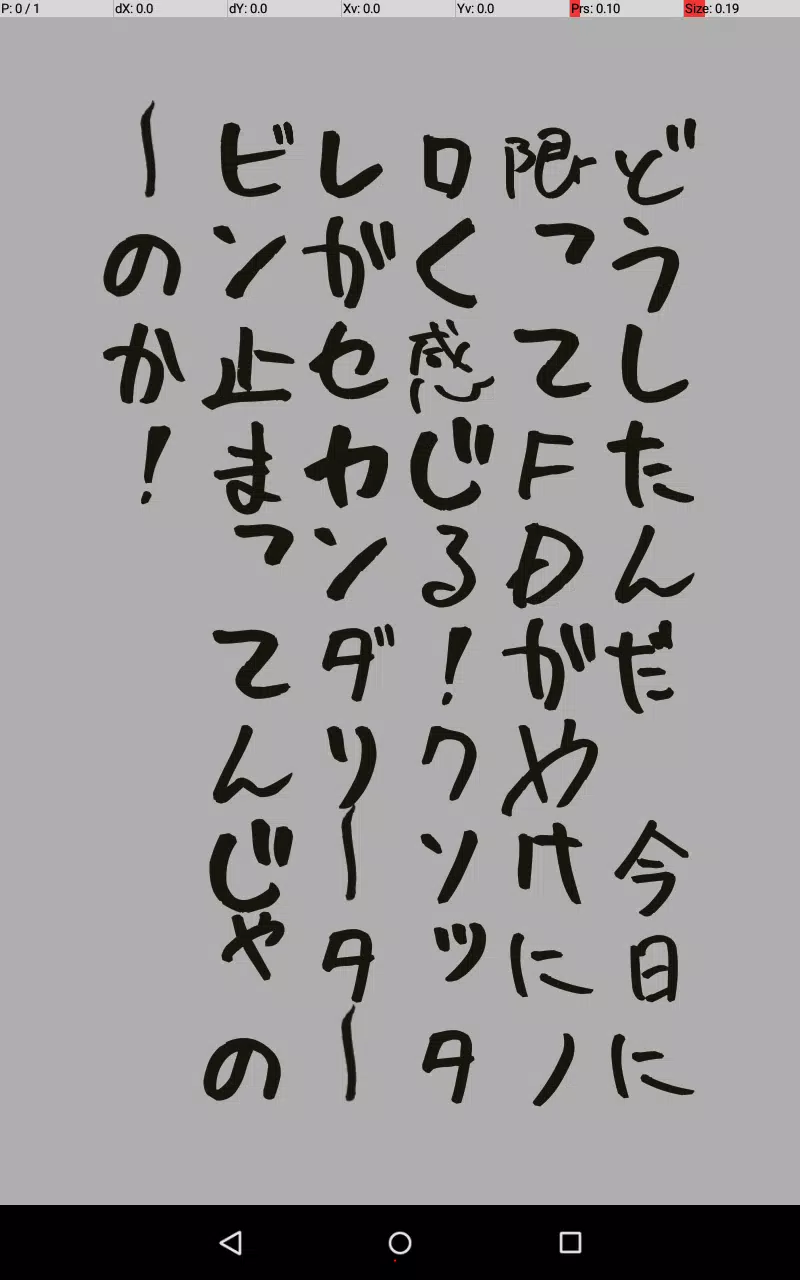 P: 0 / 1 dX: 0.0 dY: 0.0 Xv: 0.0 Yv: 0.0 Prs: 0.10 Size: 0.19
どうしたんだ　今日に
限ってFDがやけにノ
ロく感じる！クソッタ
レがセカンダリーター
ビン止まってんじゃの
ーのか！